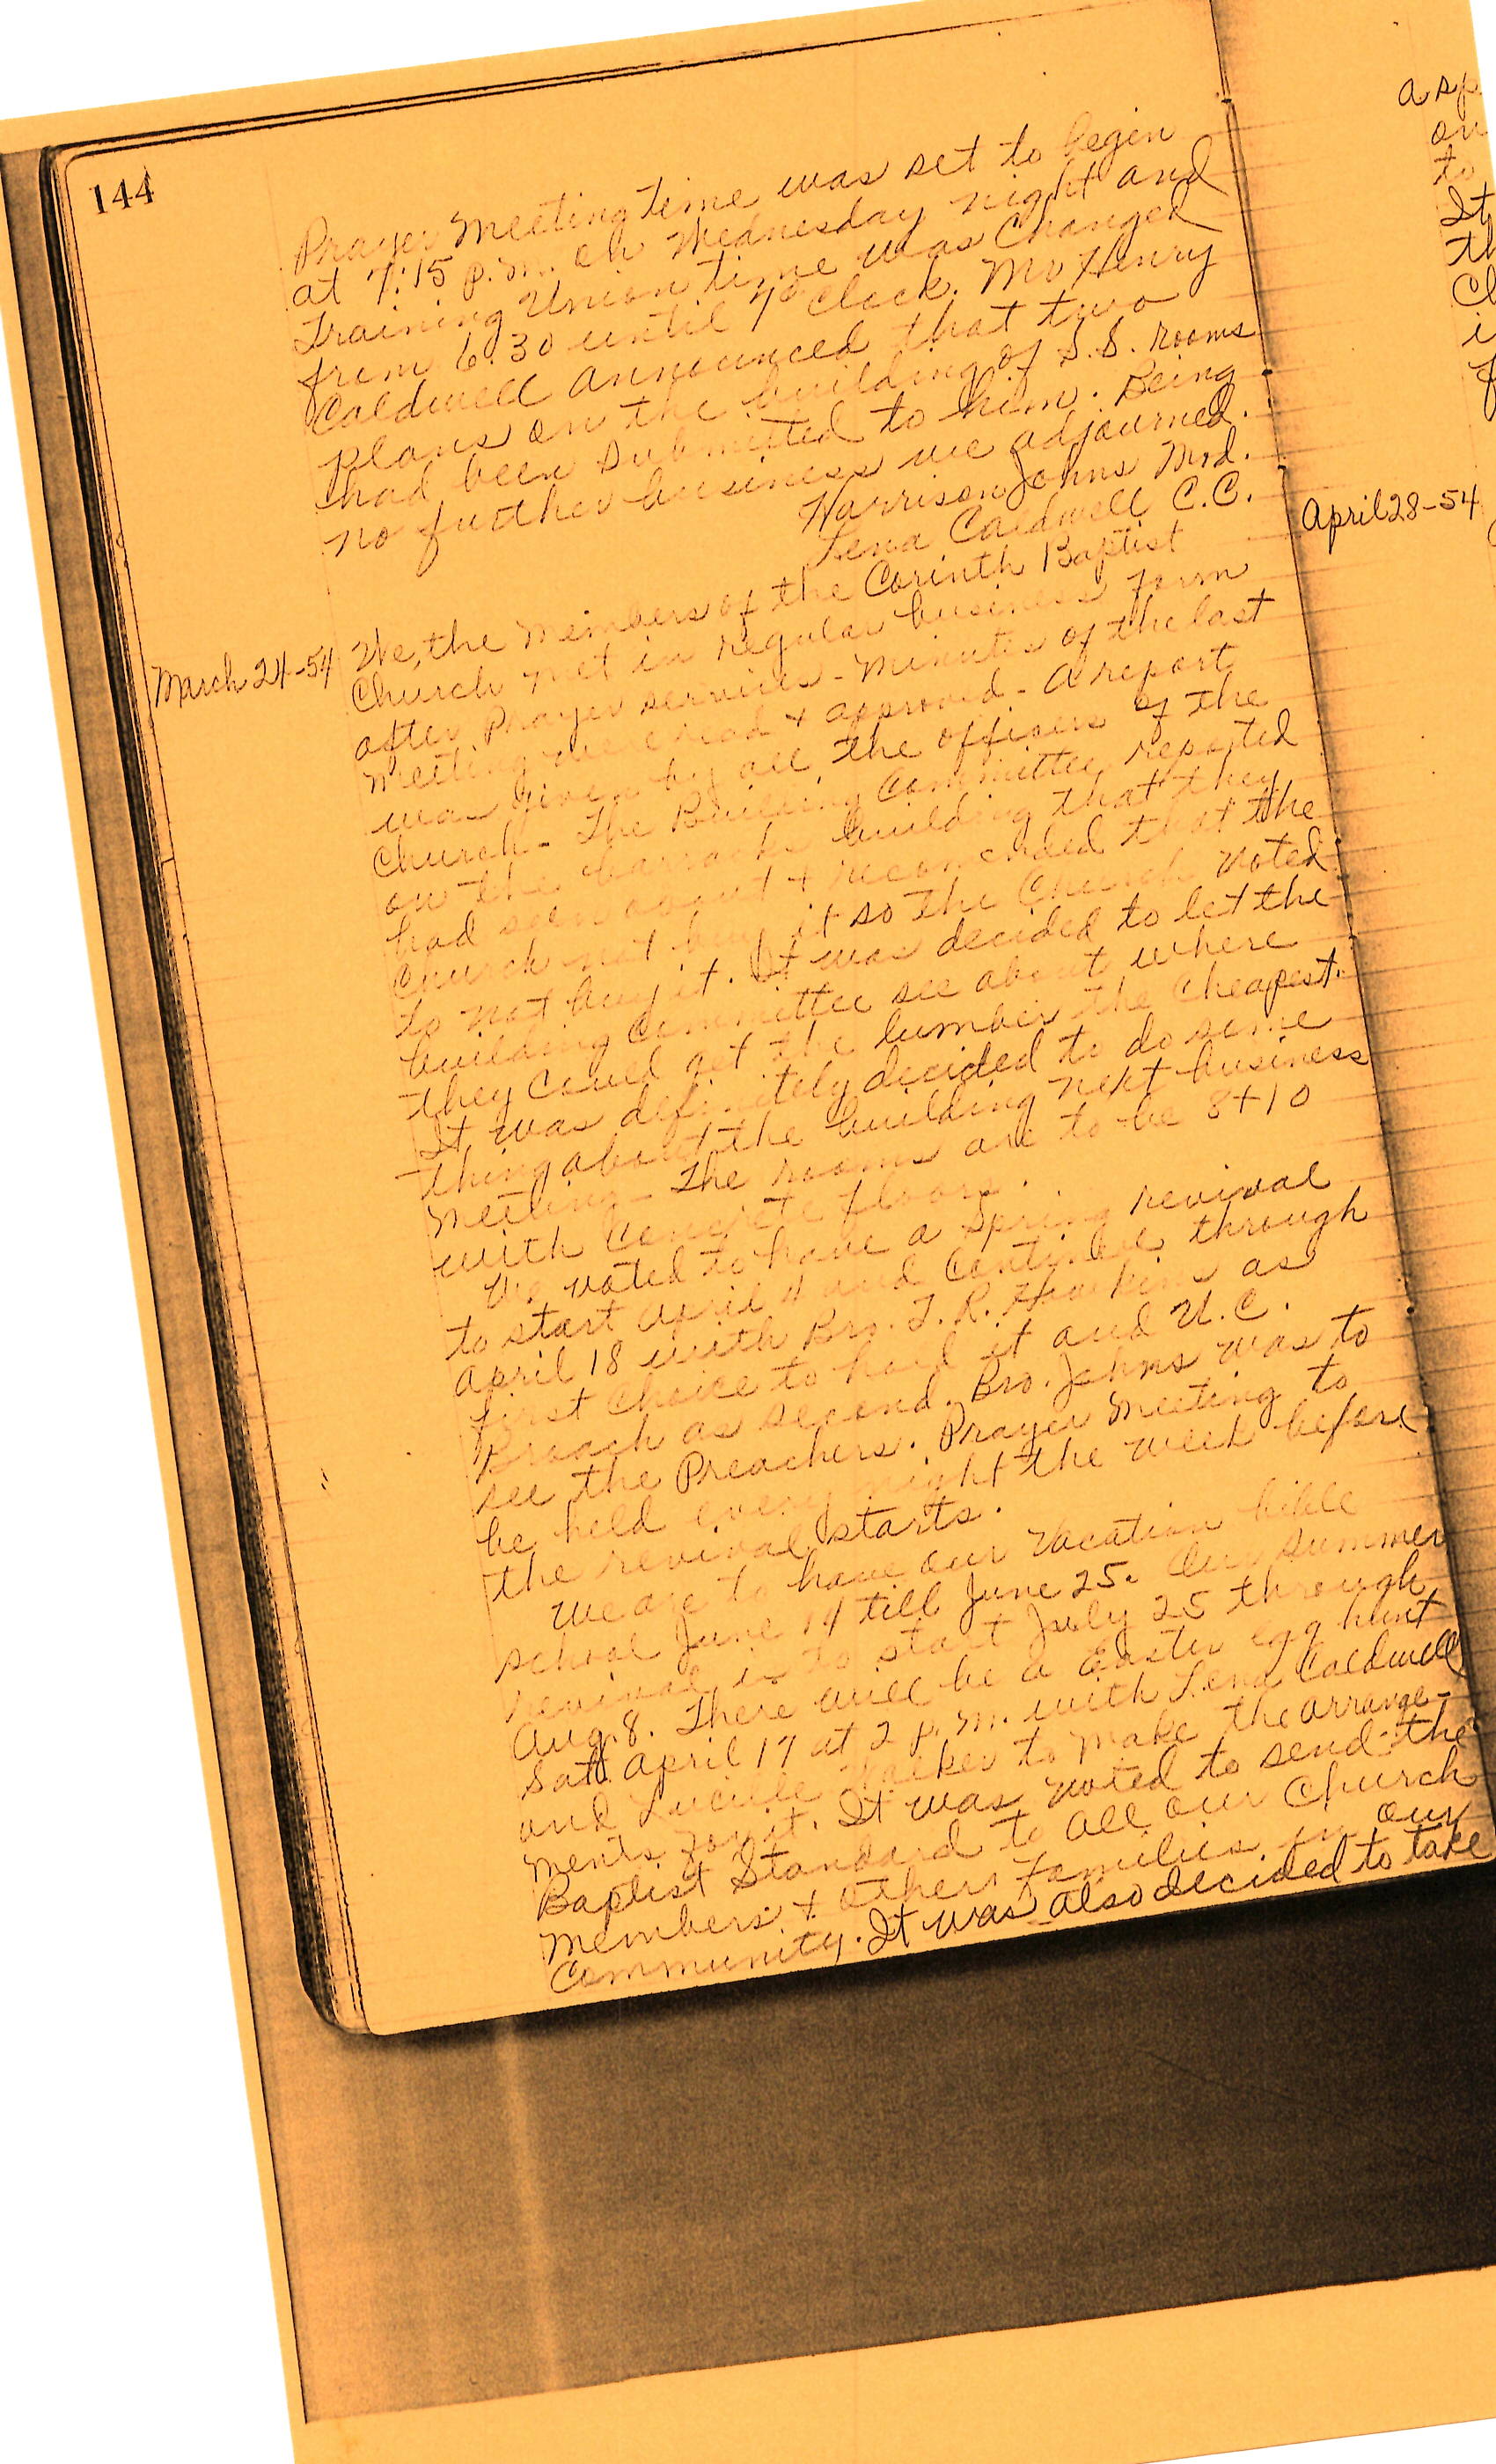 144
Prayer Meeting time was set to begin
at 7:15 p.m. on Wednesday night and
Training Union time was Changed
from 6:30 until 7 o'clock. Mr Henry
Caldwell announced that two
plans on the building of S.S. rooms
had been submitted to him. Being
no further business we adjourned.
Harrison Johns Mod.
Lena Caldwell C.C.
March 24-54
We, the Members of the Corinth Baptist
Church met in regular business form
after Prayer services - Minutes of the last
meeting were read + approved - A report
was given by all the officers of the
Church - The Building Committee reported
on the barracks building that they
had seen about + recomended that the
Church not buy it so the Church voted
to not buy it. It was decided to let the
building Committee see about where
they Could get the lumber the Cheapest.
It was definitely decided to do some
thing about the building next business
meeting - The rooms are to be 8+10
with Concrete floors.
We voted to have a Spring revival
to start April 11 and Continue through
April 18 with Bro. T. R. Hawkins as
first Choice to hold it and U. C.
Broach as second. Bro. Johns was to
see the Preachers. Prayer Meeting to
be held every night the week before
the revival starts.
We are to have our Vacation bible
school June 14 till June 25. Our summer
revival is to start July 25 through
Aug. 8. There will be a Easter egg hunt
Sat. April 17 at 2 p.m. with Lena Caldwell
and Lucille Walker to make the arrange-
ments for it. It was voted to send the
Baptist Standard to all our Church
members + other families in our
Community. It was also decided to take
a sp
on
to
It
th
Cl
i
f
April 28-54